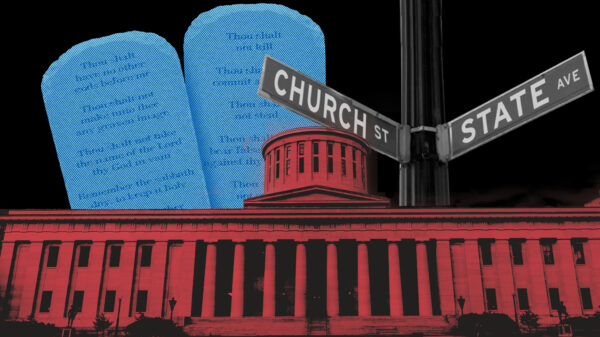 Thou shalt
have no other
gods before me
Thou shalt not
make unto thee
any graven image
Thou shalt not take
the name of the Lord
thy God in vain
Remember the sabbath
day, to keep it holy
Thou shalt
not kill
Thou shalt
commit
Thou shalt
not steal
Thou shalt
bear fals
against th
Thou
CHURCH ST
STATE AVE